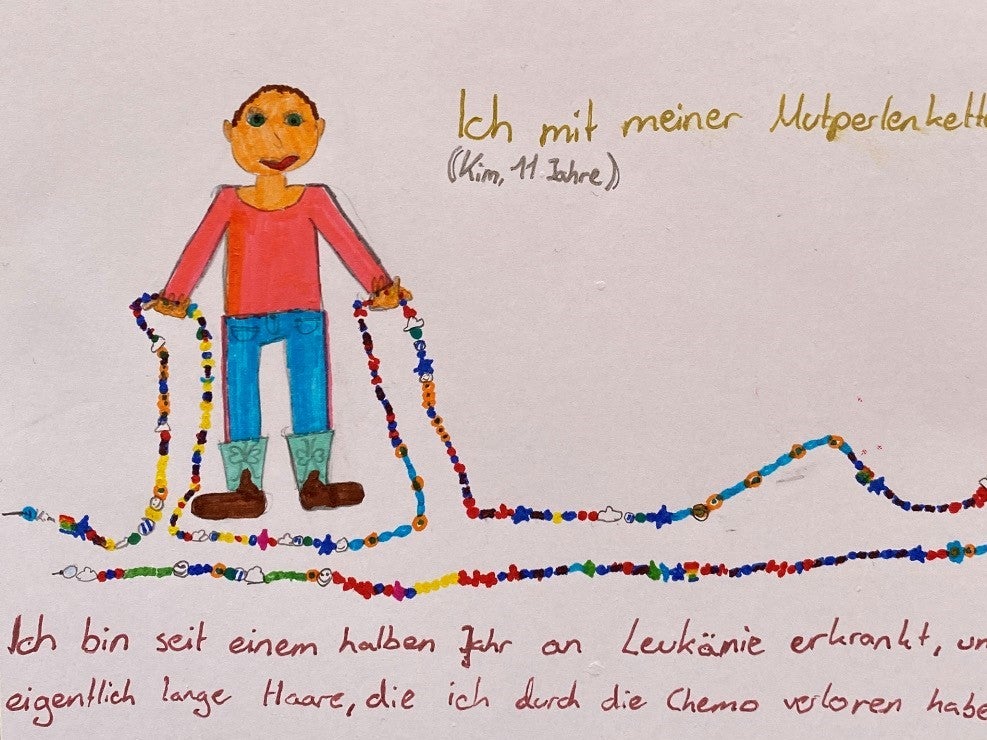 Ich mit meiner Mutperlenkette
(Kim, 11 Jahre)
Ich bin seit einem halben Jahr an Leukämie erkrankt, un
eigentlich lange Haare, die ich durch die Chemo verloren habe